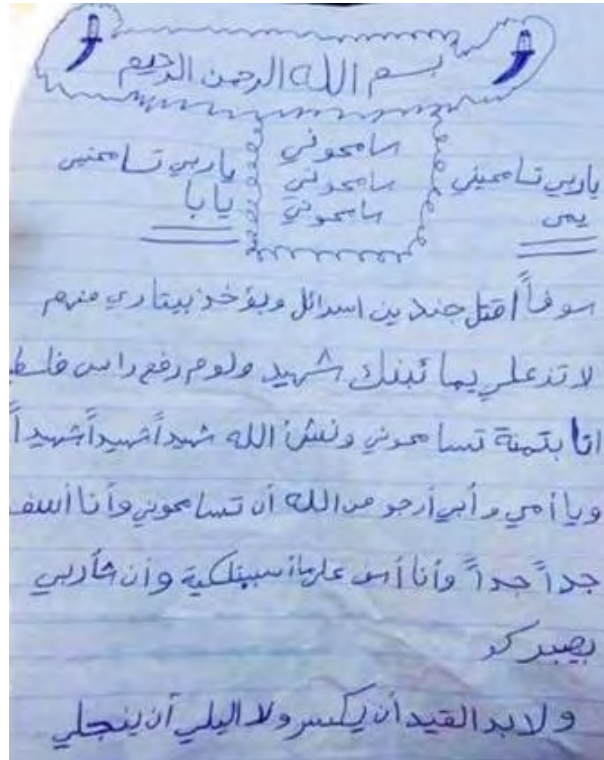 بسم الله الرحمن الرحيم
ياربي تسامحيني
يمى
سامحوني
سامحوني
سامحوني
ياربي تسامحنيى
يابا
سوفاً اقتل جندين اسرائل وبؤخذ بيتاري منهم
لا تزعلي يما ئبنك شهيد ولوم رفع راس فلسط
انا بتمنة تسامحوني ونشأ الله شهيداً شهيداً شهيداً
ويا أمي وأبي أرجو من الله أن تسامحوني وأنا أسف
جداً جداً وأنا أسف علي وأن شأربي
يصبركو
ولا بد القيد أن يكسر ولا اليلي أن ينجلي